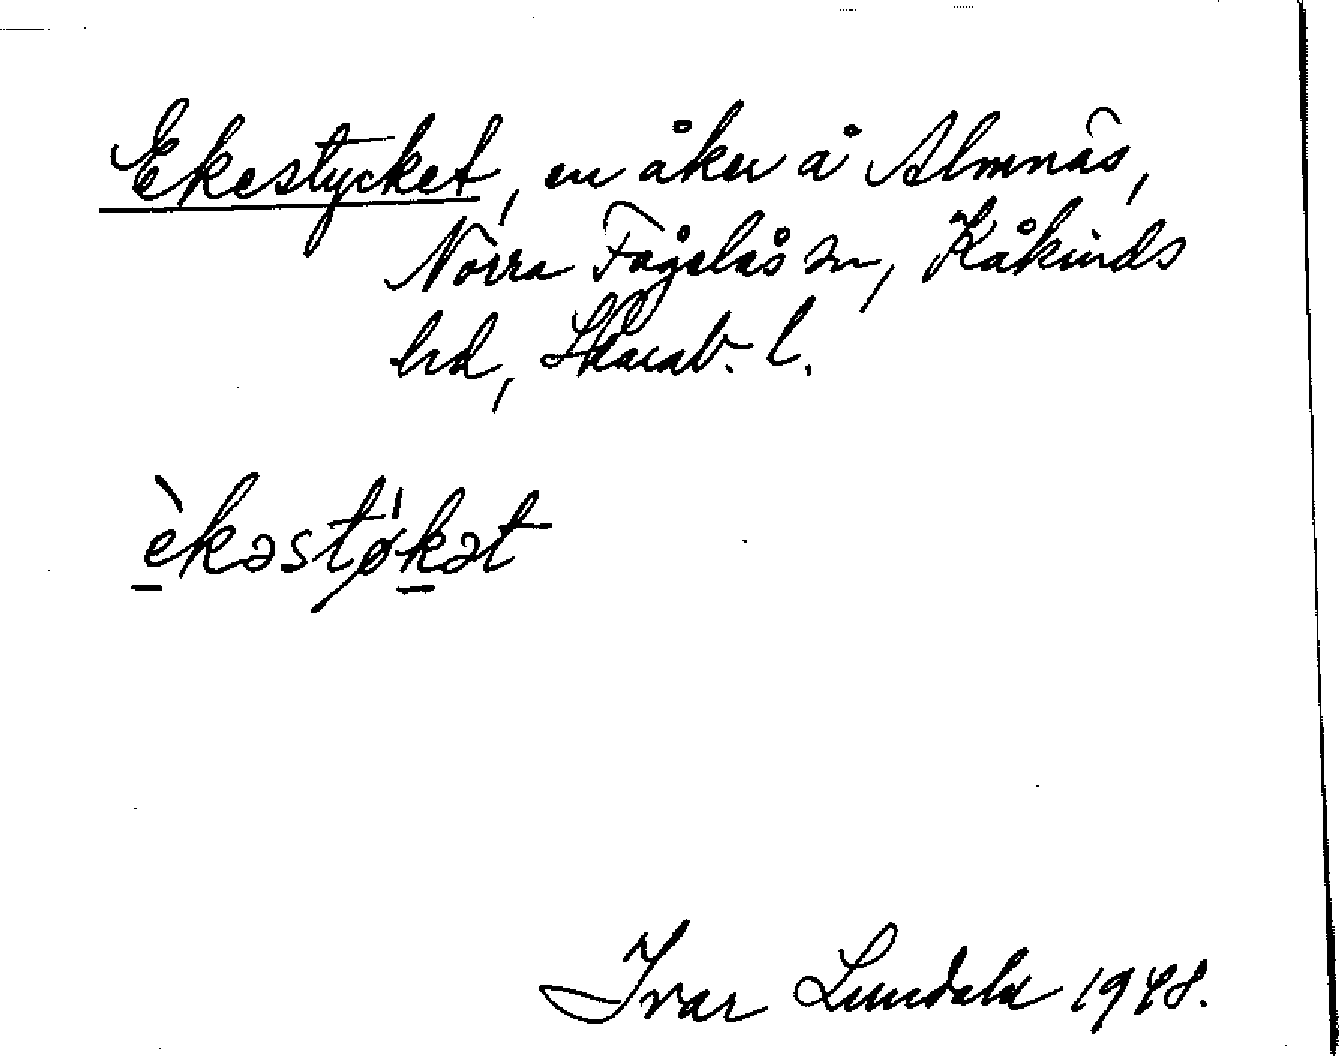 Ekestycket, en åker å Almnäs,
Norra Fågelås sn, Kåkinds
hd, Skarab. l.
èkəstø̍kət
Ivar Lundahl 1948.